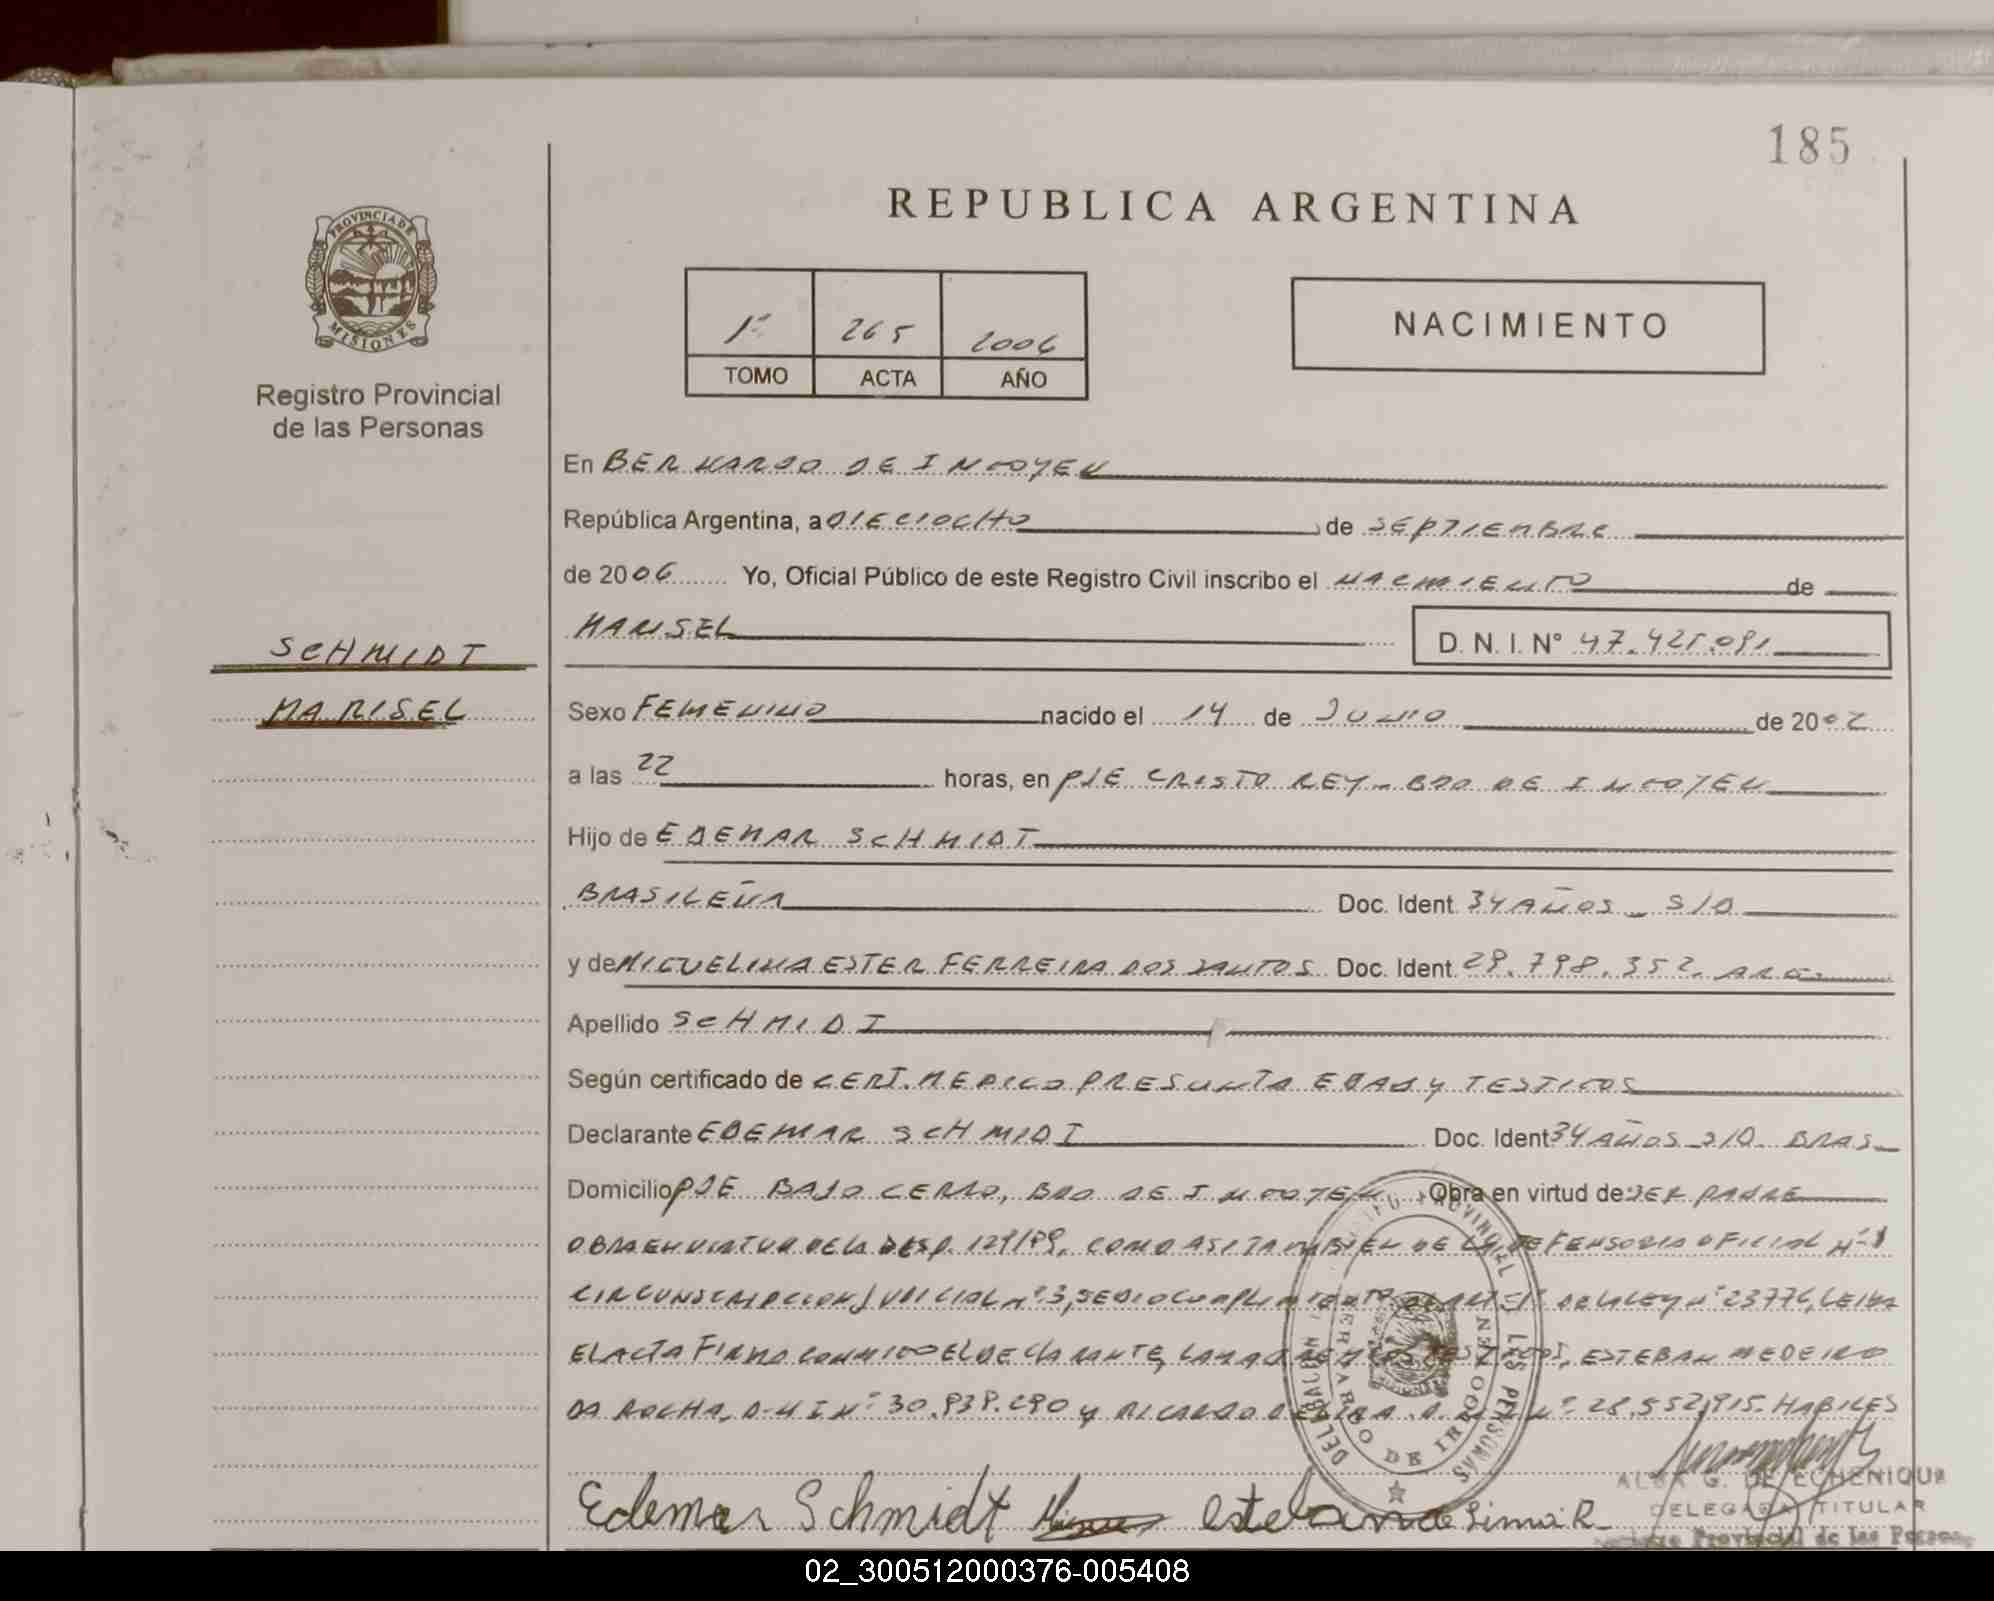 185
REPUBLICA ARGENTINA
PROVINCIA DE MISIONES
Registro Provincial
de las Personas
1º 265 2006
TOMO ACTA AÑO
NACIMIENTO
En BERNARDO DE IRIGOYEN
República Argentina, a DIECIOCHO de SEPTIEMBRE
de 2006 Yo, Oficial Público de este Registro Civil inscribo el NACIMIENTO de
MARISEL D. N. I. Nº 47.425.091
SCHMIDT
MARISEL
Sexo FEMENINO nacido el 14 de JUNIO de 2002
a las 22 horas, en PJE CRISTO REY - BDO DE IRIGOYEN
Hijo de EDEMAR SCHMIDT
BRASILEÑA Doc. Ident. 34 AÑOS - S/D
y de MIGUELINA ESTER FERREIRA DOS SANTOS Doc. Ident. 29.798.352. ARG.
Apellido SCHMIDT
Según certificado de CERT. MEDICO PRESUNTA EDAD y TESTIGOS
Declarante EDEMAR SCHMIDT Doc. Ident 34 AÑOS S/D BRAS
Domicilio PJE BAJO CERRO, BDO DE IRIGOYEN Obra en virtud de SER PADRE
OBRA EN VIRTUD DE LA DISP. 129/89, COMO ASI TAMBIEN DE LA DEFENSORIA OFICIAL Nº 1
CIRCUNSCRIPCION JUDICIAL Nº 3, SE DIO CUMPLIMIENTO DE LA LEY Nº 23776, LEIDA
EL ACTA FIRMA CONMIGO EL DECLARANTE, LA MADRE Y LOS TESTIGOS, ESTEBAN MEDEIRO
DA ROCHA, D.N.I Nº 30.939.290 y RICARDO Nº 28.552.915. HABILES
Edemar Schmidt esteban de Lima R
PROVINCIAL DE LAS PERSONAS
BERNARDO DE IRIGOYEN
ALBA G. DE ECHENIQUE
DELEGADA TITULAR
Provincial de las Personas
02_300512000376-005408